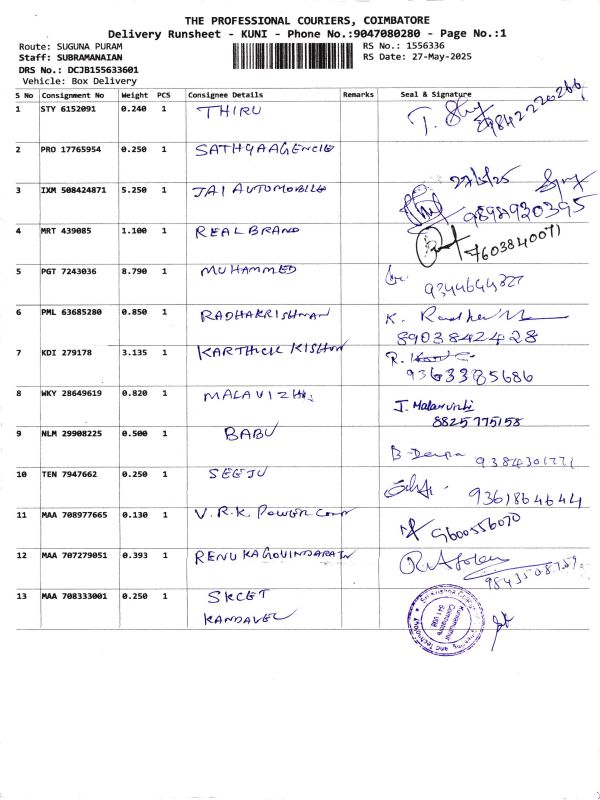 THE PROFESSIONAL COURIERS, COIMBATORE
Delivery Runsheet - KUNI - Phone No.:9047080280 - Page No.:1
Route: SUGUNA PURAM
RS No.: 1556336
Staff: SUBRAMANAIAN
RS Date: 27-May-2025
DRS No.: DCJB155633601
Vehicle: Box Delivery
S No Consignment No Weight PCS Consignee Details Remarks Seal & Signature
1 STY 6152091 0.240 1 THIRU 9842220266
2 PRO 17765954 0.250 1 SATHYAAGENCIE
27/5/25
3 IXM 508424871 5.250 1 JAI AUTOMOBILE 9892930395
4 MRT 439085 1.100 1 REALBRAND 7603840071
5 PGT 7243036 8.790 1 MUHAMMED
6 PML 63685280 0.850 1 RADHAKRISHNAN K.
8903842428
7 KDI 279178 3.135 1 KARTHICK KISHOR R.
9363385686
8 WKY 28649619 0.820 1 MALAVIZHI J. Malarvizhi
8825775158
9 NLM 29908225 0.500 1 BABU B
10 TEN 7947662 0.250 1 SEEJU 9361864644
11 MAA 708977665 0.130 1 V.R.K POWER CONT 9600556070
12 MAA 707279051 0.393 1 RENUKAGOVINDARAJN
13 MAA 708333001 0.250 1 SKCET
KANDAVEL